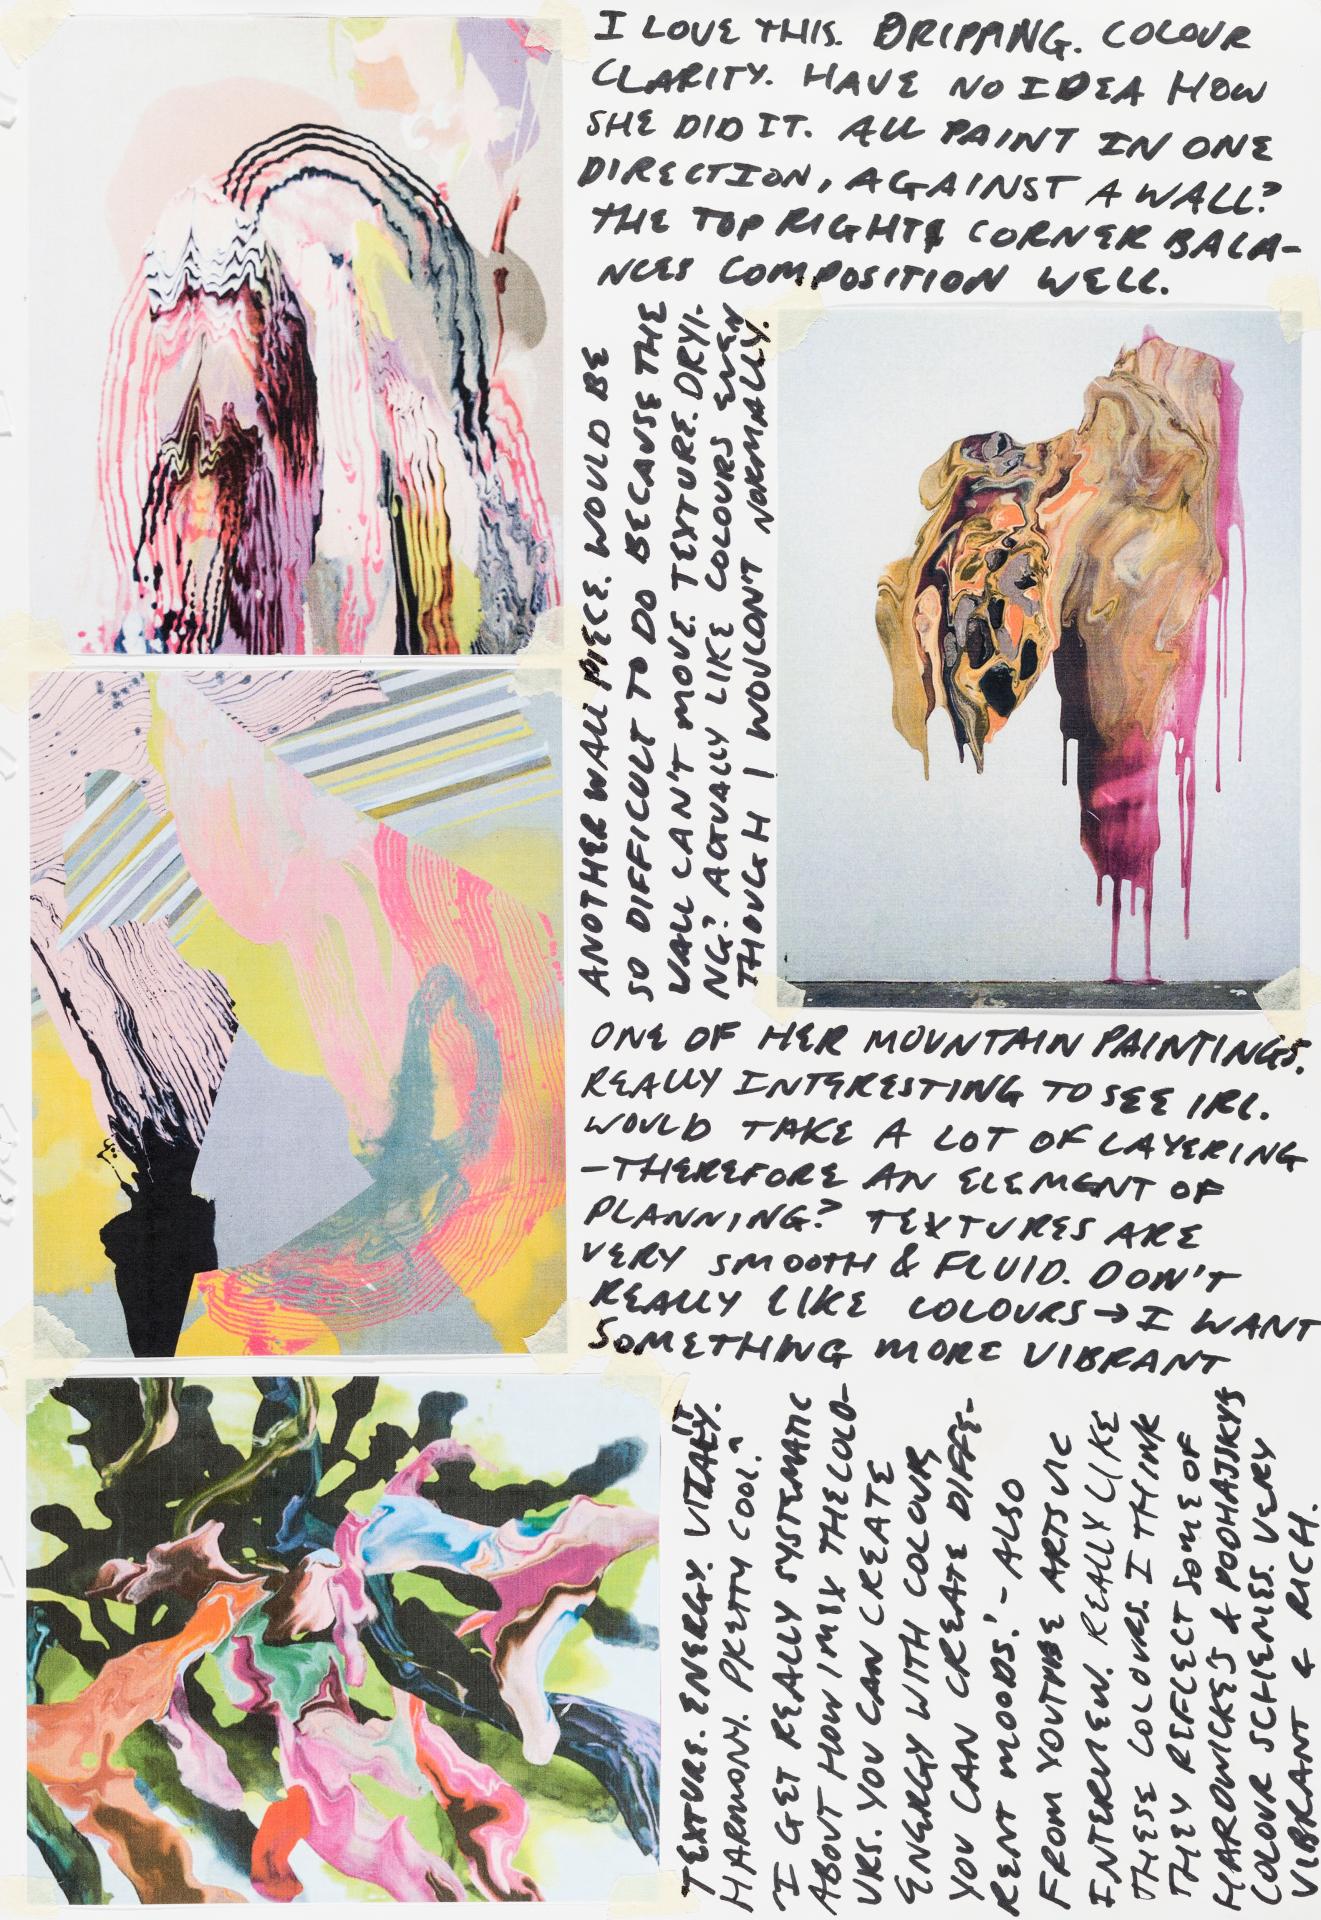 I LOVE THIS. DRIPPING. COLOUR
CLARITY. HAVE NO IDEA HOW
SHE DID IT. ALL PAINT IN ONE
DIRECTION, AGAINST A WALL?
THE TOP RIGHT CORNER BALA-
NCES COMPOSITION WELL.
ANOTHER WALL PIECE. WOULD BE
SO DIFFICULT TO DO BECAUSE THE
WALL CAN'T MOVE. TEXTURE. DRYI-
NG? ACTUALLY LIKE COLOURS EVEN
THOUGH I WOULDN'T NORMALLY.
ONE OF HER MOUNTAIN PAINTINGS.
REALLY INTERESTING TO SEE IRL.
WOULD TAKE A LOT OF LAYERING
-THEREFORE AN ELEMENT OF
PLANNING? TEXTURES ARE
VERY SMOOTH & FLUID. DON'T
REALLY LIKE COLOURS → I WANT
SOMETHING MORE VIBRANT
TEXTURE. ENERGY. VITALITY.
HARMONY. PRETTY COOL.
'I GET REALLY SYSTEMATIC
ABOUT HOW I MIX THE COLO-
URS. YOU CAN CREATE
ENERGY WITH COLOUR,
YOU CAN CREATE DIFFE-
RENT MOODS.' - ALSO
FROM YOUTUBE ARTS VIC
INTERVIEW. REALLY LIKE
THESE COLOURS. I THINK
THEY REFLECT SOME OF
HARDWICKE'S & PODHAJSKYS
COLOUR SCHEMES. VERY
VIBRANT & RICH.